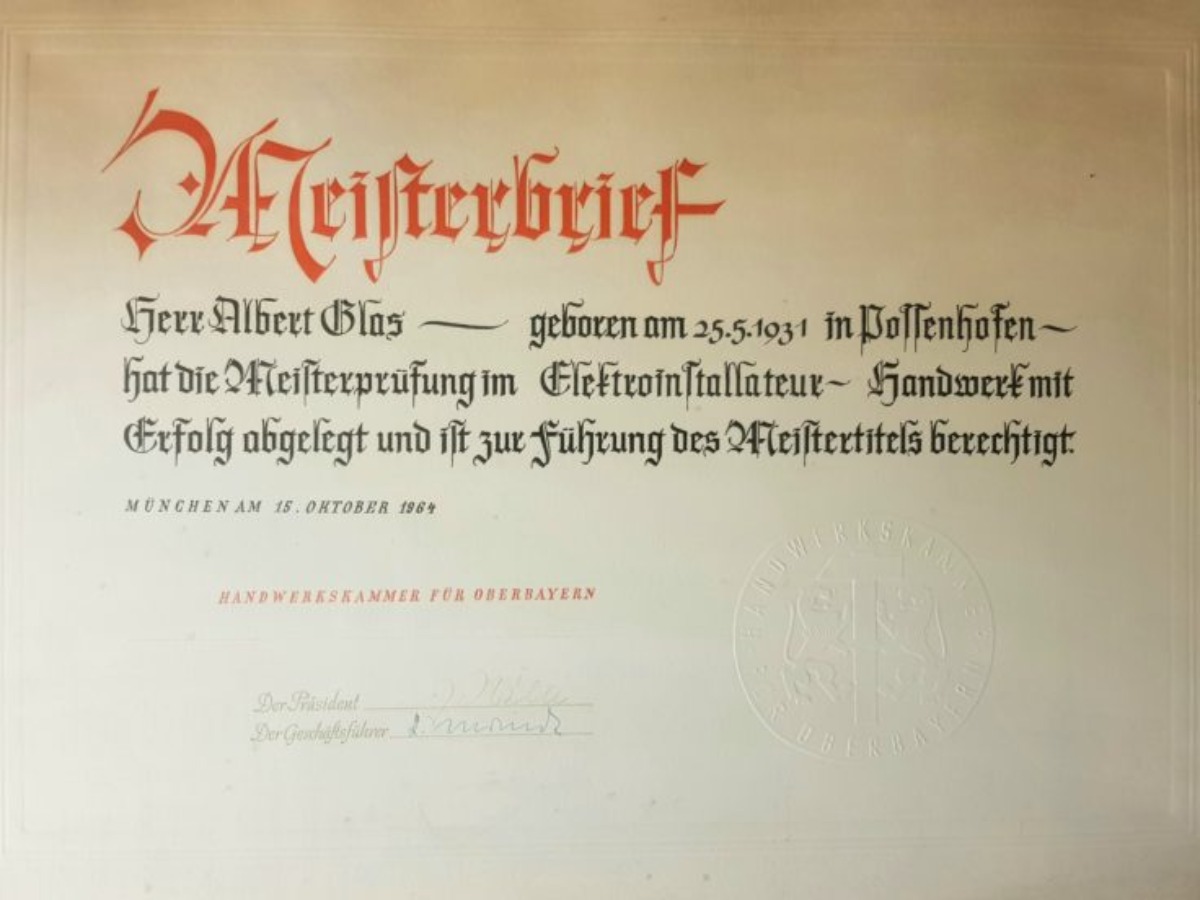 Meisterbrief
Herr Albert Glas — geboren am 25.5.1931 in Possenhofen ~
hat die Meisterprüfung im Elektroinstallateur ~ Handwerk mit
Erfolg abgelegt und ist zur Führung des Meistertitels berechtigt.
MÜNCHEN AM 15. OKTOBER 1964
HANDWERKSKAMMER FÜR OBERBAYERN
Der Präsident
Der Geschäftsführer
HANDWERKSKAMMER FÜR OBERBAYERN